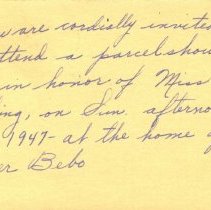 are cordially invited
attend a parcel show
in honor of Miss
ing, on Sun. afterno
1947- at the home
er Bebo